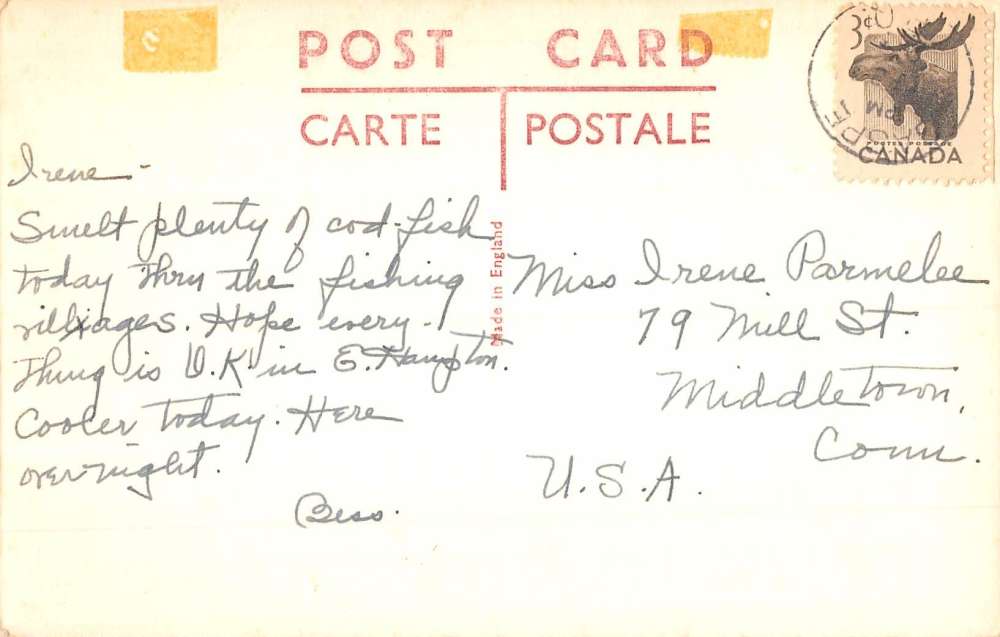 POST CARD
CARTE POSTALE
Made in England
3¢
PM
POSTES POSTAGE
CANADA
Irene -
Smelt plenty of cod-fish
today thru the fishing
villxages. Hope every-
thing is O.K. in E. Hampton.
Cooler today. Here
overnight.
Bess.
Miss Irene Parmelee
79 Mill St.
Middletown,
Conn.
U.S.A.